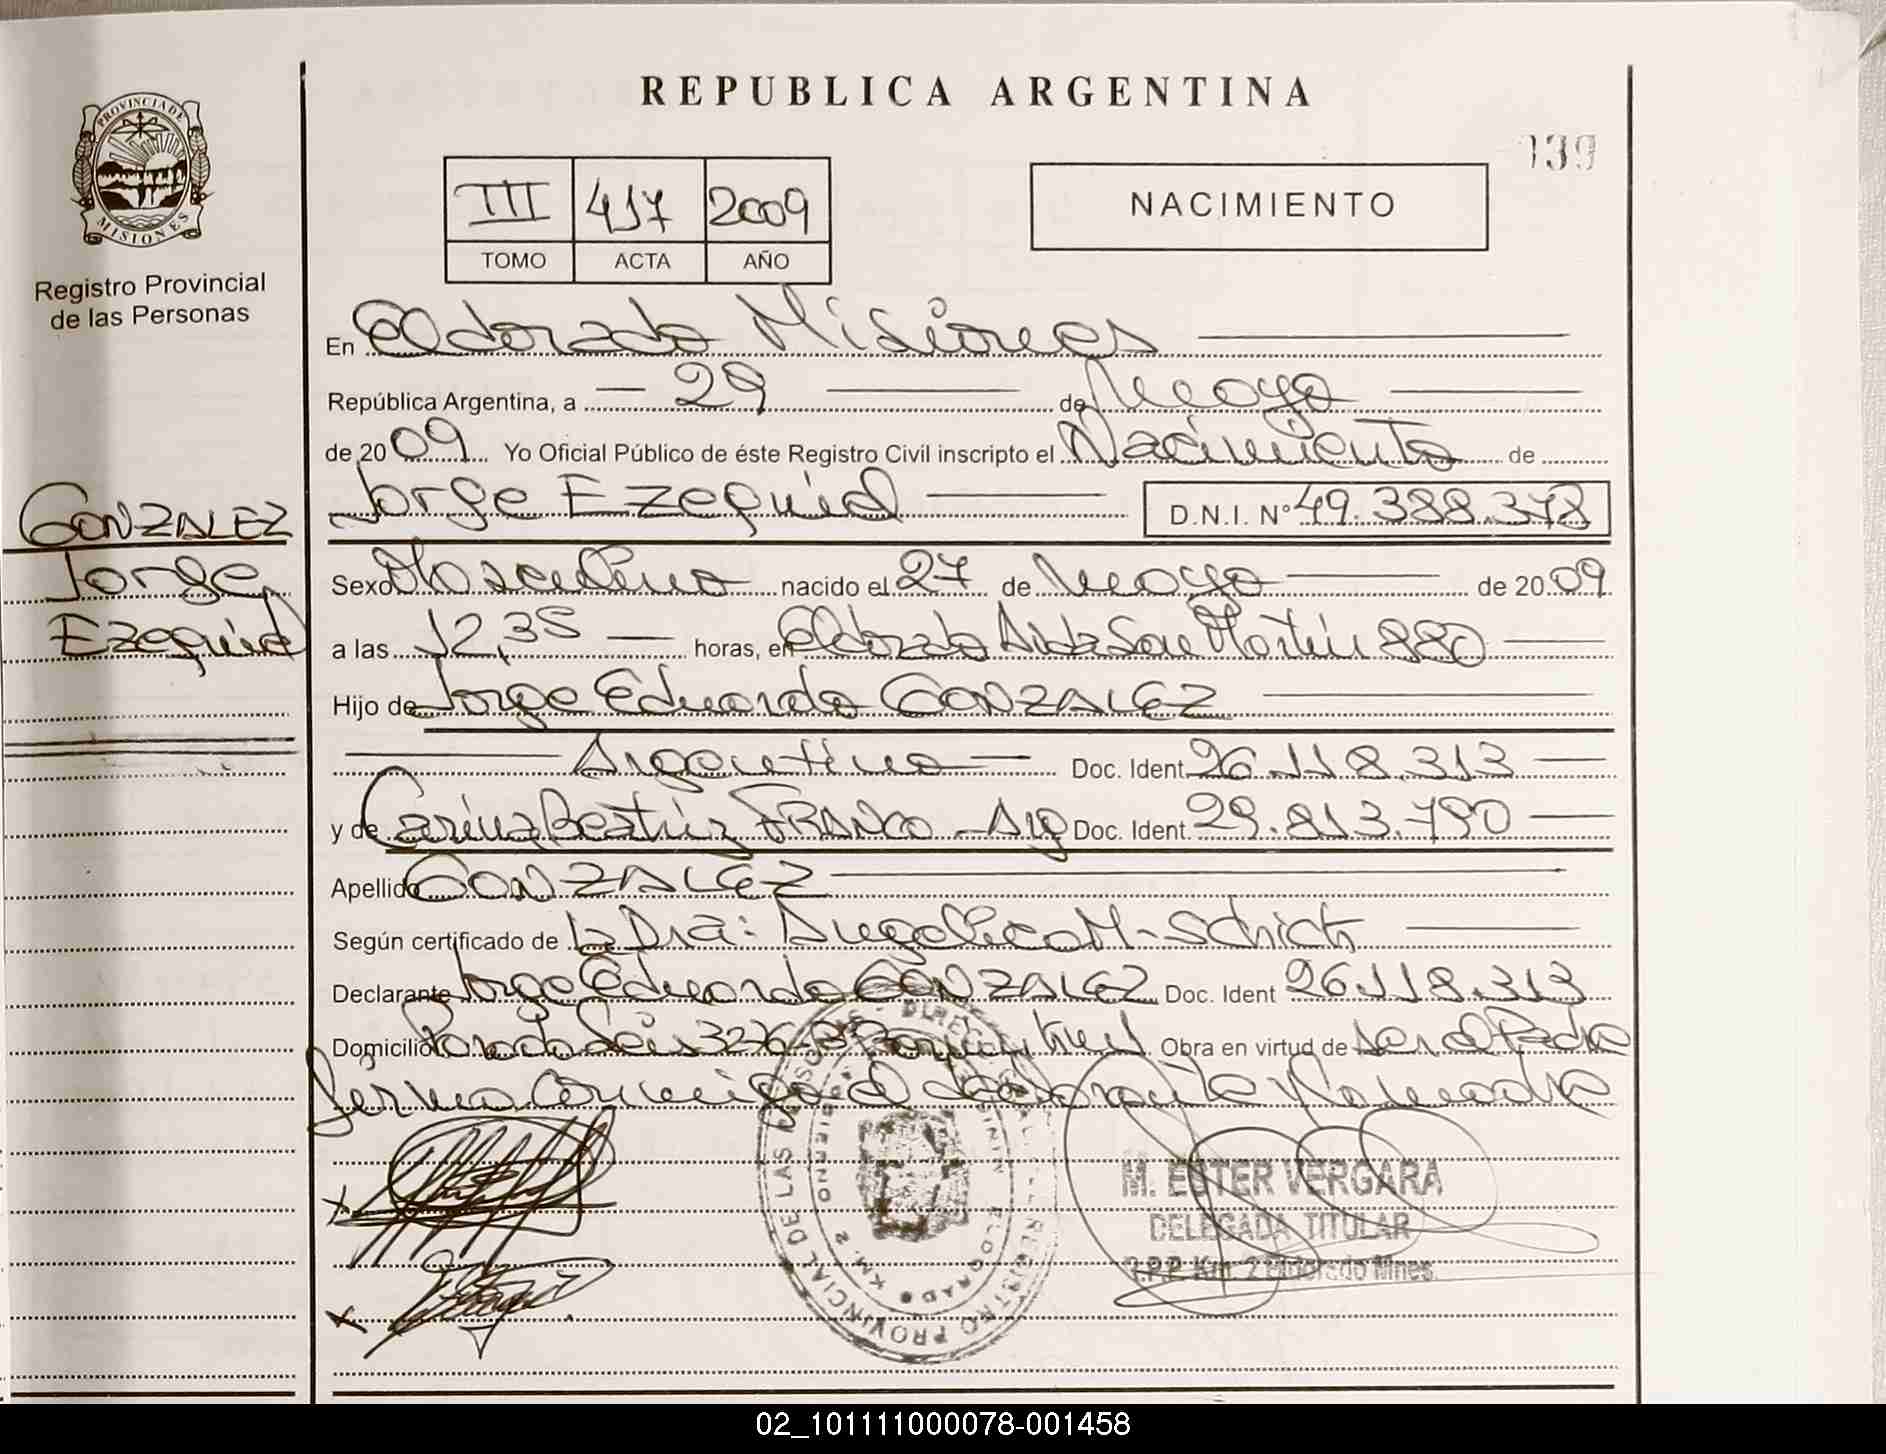 REPUBLICA ARGENTINA
139
PROVINCIA DE MISIONES
Registro Provincial
de las Personas
III 417 2009
TOMO ACTA AÑO
NACIMIENTO
En Eldorado Misiones
República Argentina, a 29 de Mayo
de 2009 Yo Oficial Público de éste Registro Civil inscripto el Nacimiento de
Jorge Ezequiel D.N.I. Nº 49.388.378
GONZALEZ
Jorge
Ezequiel
Sexo Masculino nacido el 27 de Mayo de 2009
a las 12,35 horas, en Eldorado Avda San Martin 880
Hijo de Jorge Eduardo GONZALEZ
Argentino Doc. Ident. 26.118.313
y de Carina Beatriz FRANCO - Arg Doc. Ident. 29.813.790
Apellido GONZALEZ
Según certificado de la Dra: Angelica M. Schicht
Declarante Jorge Eduardo GONZALEZ Doc. Ident 26.118.313
Domicilio Parada Seis 326 Obra en virtud de ser el Padre
firma conmigo el declarante y la madre
M. ESTER VERGARA
DELEGADA TITULAR
R.P.P. Km. 2 Eldorado Mnes.
02_101111000078-001458